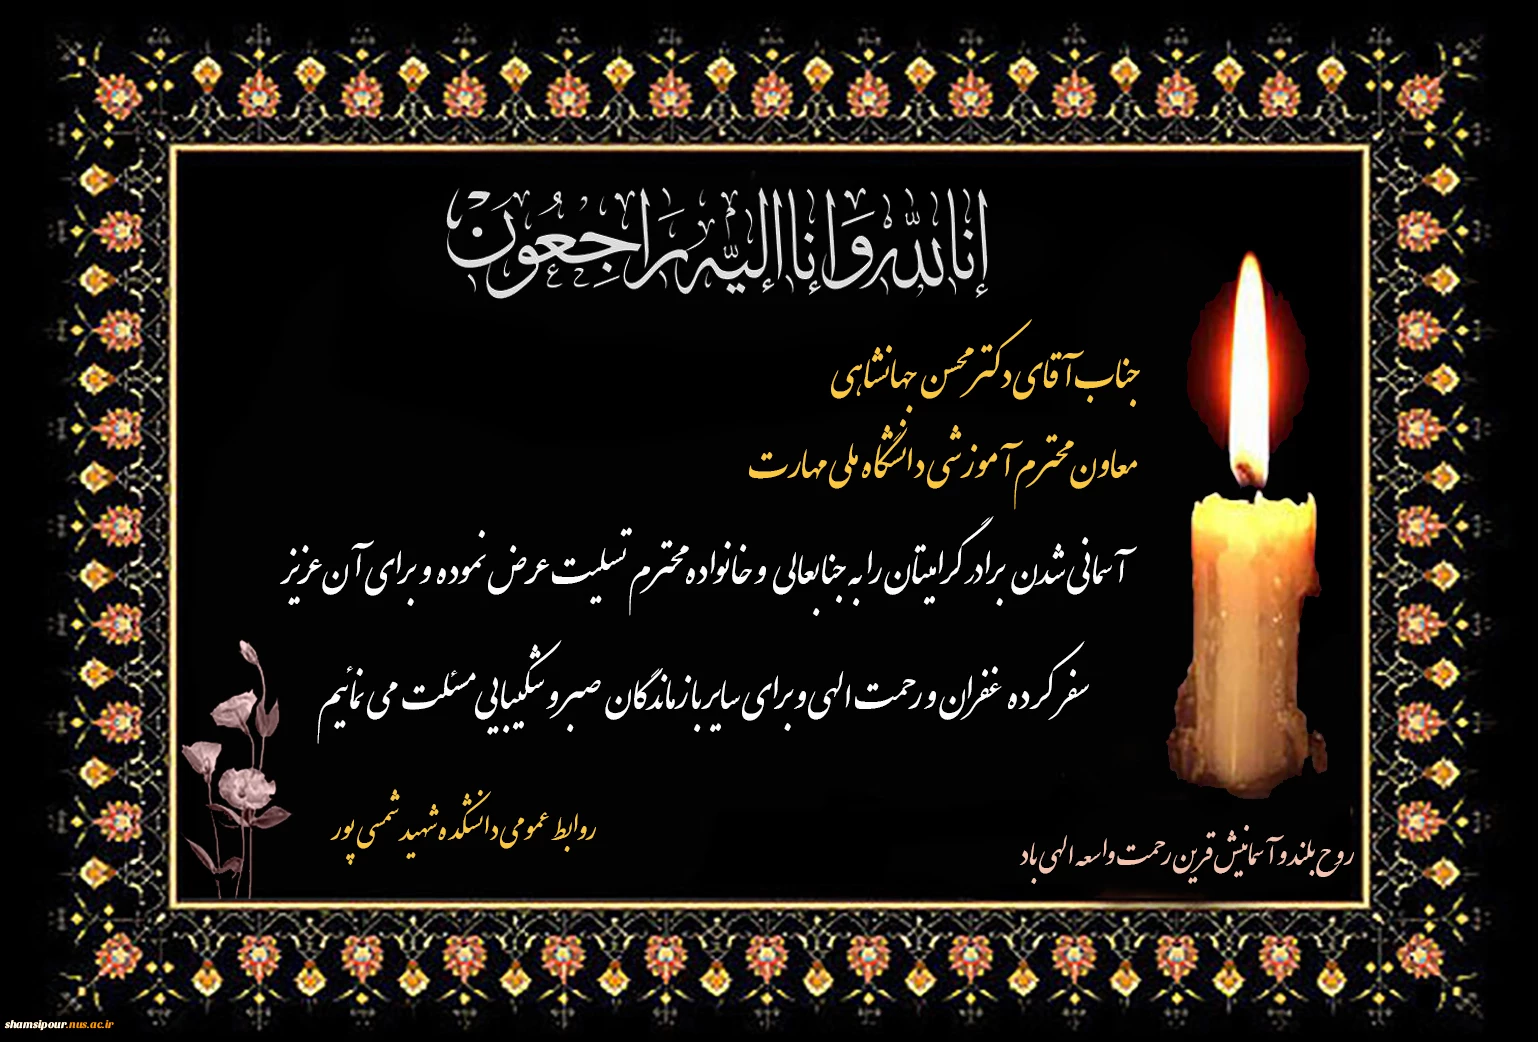 انا لله وانا الیه راجعون
جناب آقای دکتر محسن جهانشاهی
معاون محترم آموزشی دانشگاه ملی مهارت
آسمانی شدن برادر گرامیتان را به جنابعالی و خانواده محترم تسلیت عرض نموده و برای آن عزیز
سفر کرده غفران و رحمت الهی و برای سایر بازماندگان صبر و شکیبایی مسئلت می نمائیم
روابط عمومی دانشکده شهید شمسی پور
روح بلند و آسمانیش قرین رحمت واسعه الهی باد
shamsipour.nus.ac.ir